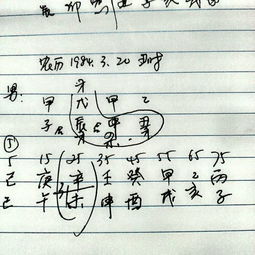 农历 1984. 3. 20 丑时
才
男: 甲 戊 甲 乙
子 辰 申 丑
⑤
5 15 25 35 45 55 65 75
己 庚 辛 壬 癸 甲 乙 丙
巳 午 未 申 酉 戌 亥 子